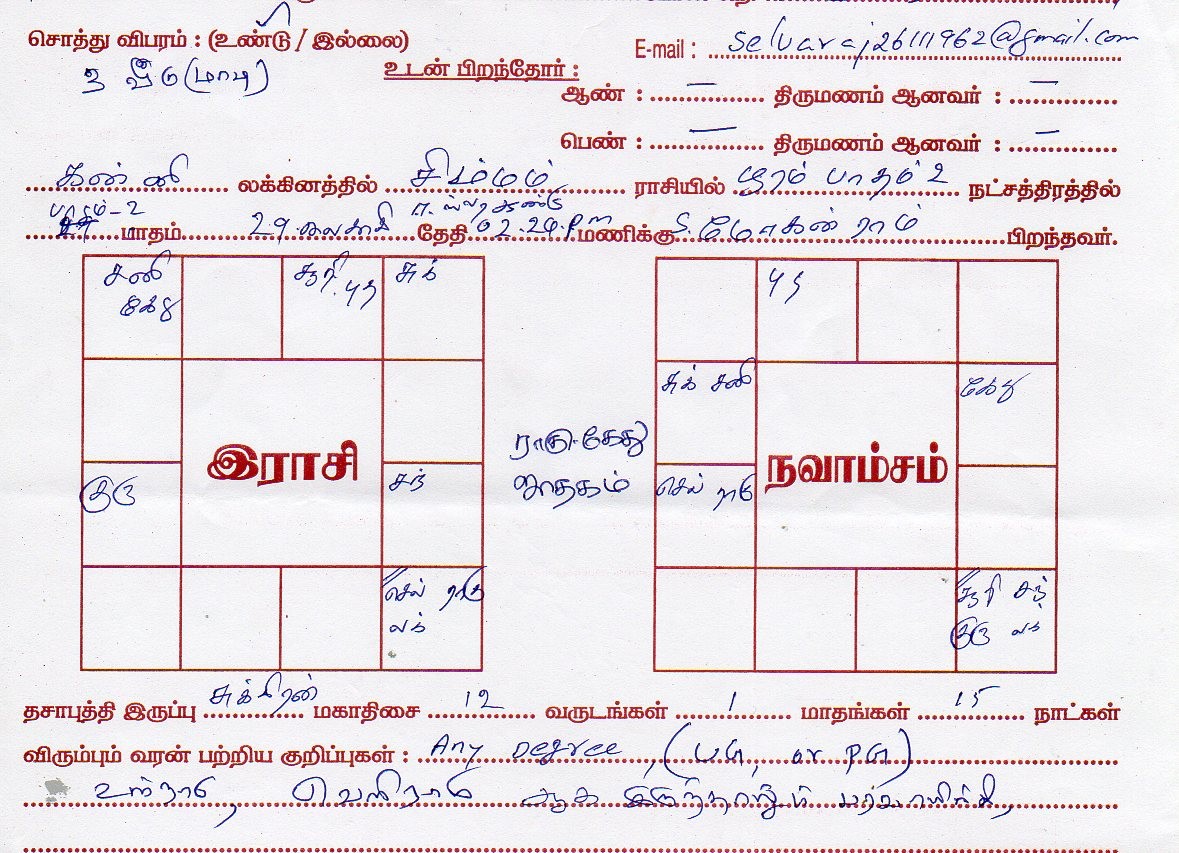 சொத்து விபரம் : (உண்டு / இல்லை)
E-mail : selvaraj26111962@gmail.com
3 வீடு (மாடி)
உடன் பிறந்தோர் :
ஆண் : — திருமணம் ஆனவர் : —
பெண் : — திருமணம் ஆனவர் : —
கன்னி லக்கினத்தில் சிம்மம் ராசியில் பூரம் பாதம் 2 நட்சத்திரத்தில்
பாதம் - 2
மாதம் 29. வைகாசி தேதி 02.24.P.m மணிக்கு S. மோகன் ராம் பிறந்தவர்.
சனி
கேது
சூரி. புத
சுக்
குரு
சந்
செல் ராகு
லக்
இராசி
ராகு-கேது
ஜாதகம்
புத
சுக் சனி
கேது
செல் ராகு
சூரி சந்
குரு லக்
நவாம்சம்
தசாபுத்தி இருப்பு சுக்கிரன் மகாதிசை 12 வருடங்கள் 1 மாதங்கள் 15 நாட்கள்
விரும்பும் வரன் பற்றிய குறிப்புகள் : Any Degree, (UG, or PG)
உள்நாடு, வெளிநாடு ஆக இருந்தாலும் பரவாயில்லை,